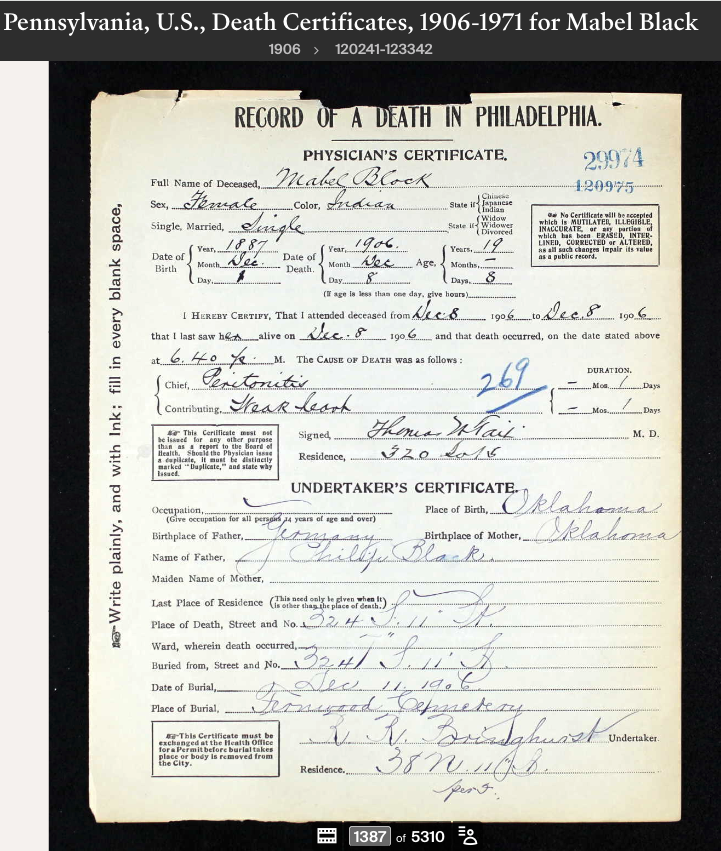 Pennsylvania, U.S., Death Certificates, 1906-1971 for Mabel Black
1906 > 120241-123342
RECORD OF A DEATH IN PHILADELPHIA.
PHYSICIAN'S CERTIFICATE.
29974
120975
Full Name of Deceased, Mabel Black
Sex, Female Color, Indian State if { Chinese Japanese Indian
Single, Married, Single State if { Widow Widower Divorced
No Certificate will be accepted
which is MUTILATED, ILLEGIBLE,
INACCURATE, or any portion of
which has been ERASED, INTER-
LINED, CORRECTED or ALTERED,
as all such changes impair its value
as a public record.
Date of Birth { Year, 1887 Month Dec. Day, 1
Date of Death. { Year, 1906. Month Dec Day 8
Age, { Years, 19 Months, – Days, 8
(If age is less than one day, give hours)
I HEREBY CERTIFY, That I attended deceased from Dec 8 1906 to Dec 8 1906
that I last saw her alive on Dec. 8 1906 and that death occurred, on the date stated above
at 6.40 P. M. The CAUSE OF DEATH was as follows:
DURATION.
Chief, Peritonitis 269 – Mos. 1 Days
Contributing, Weak heart – Mos. 1 Days
This Certificate must not
be issued for any other purpose
than as a report to the Board of
Health. Should the Physician issue
a duplicate, it must be distinctly
marked "Duplicate," and state why
issued.
Signed, Thomas M. D.
Residence, 320
UNDERTAKER'S CERTIFICATE.
Occupation, Place of Birth, Oklahoma
(Give occupation for all persons 14 years of age and over)
Birthplace of Father, Germany Birthplace of Mother, Oklahoma
Name of Father, Phillip Black.
Maiden Name of Mother,
Last Place of Residence (This need only be given when it is other than the place of death.)
Place of Death, Street and No. 324 S. 11" St.
Ward, wherein death occurred,
Buried from, Street and No. 324 S. 11" St.
Date of Burial, Dec 11. 1906
Place of Burial, Fernwood Cemetery
R. R. Bringhurst Undertaker.
This Certificate must be
exchanged at the Health Office
for a Permit before burial takes
place or body is removed from
the City.
Residence. 38 N. 11th St.
Write plainly, and with Ink; fill in every blank space,
1387 of 5310